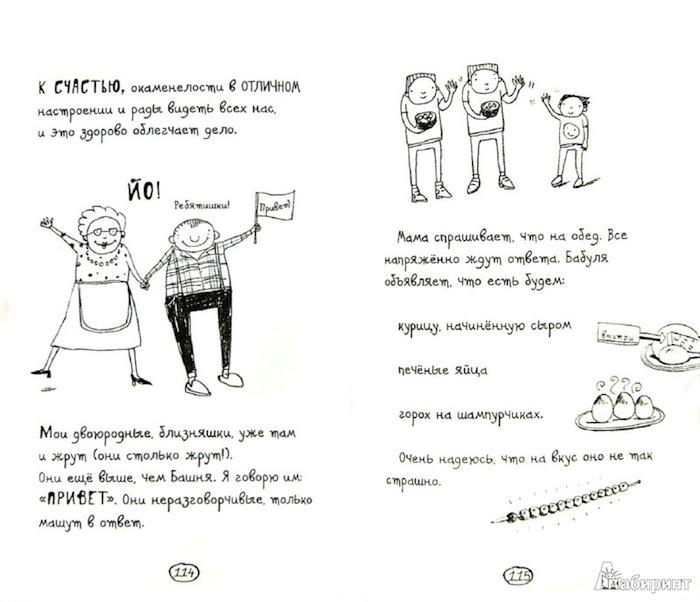 К СЧАСТЬЮ, окаменелости в ОТЛИЧНОМ
настроении и рады видеть всех нас,
и это здорово облегчает дело.
ЙО!
Ребятишки!
Привет!
Мои двоюродные, близняшки, уже там
и жрут (они столько жрут!).
Они ещё выше, чем Башня. Я говорю им:
«ПРИВЕТ». Они неразговорчивые, только
машут в ответ.
114
Мама спрашивает, что на обед. Все
напряжённо ждут ответа. Бабуля
объявляет, что есть будем:
курицу, начинённую сыром
внутри
печёные яйца
горох на шампурчиках.
Очень надеюсь, что на вкус оно не так
страшно.
115
Лабиринт